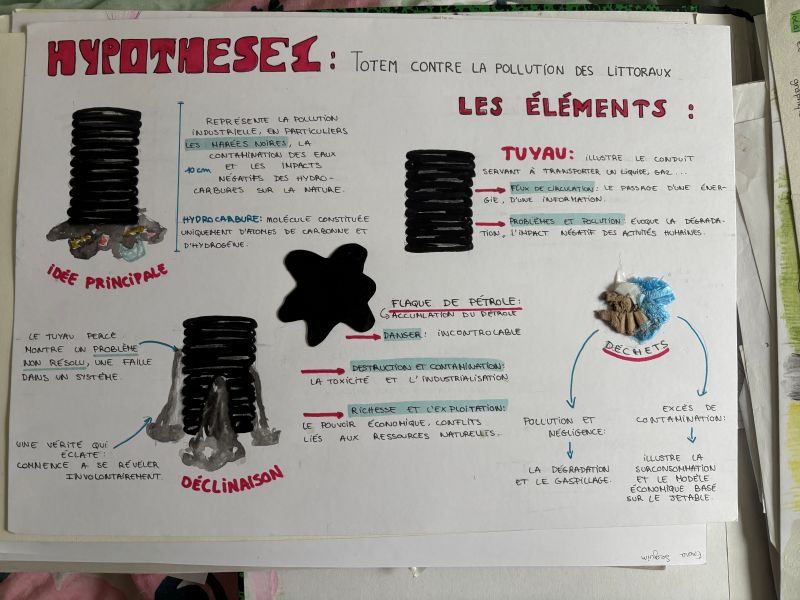 HYPOTHESE 1 : TOTEM CONTRE LA POLLUTION DES LITTORAUX
REPRÉSENTE LA POLLUTION
INDUSTRIELLE, EN PARTICULIERS
LES MARÉES NOIRES, LA
CONTAMINATION DES EAUX
ET LES IMPACTS
NÉGATIFS DES HYDRO-
CARBURES SUR LA NATURE.
10 cm
HYDROCARBURE: MOLÉCULE CONSTITUÉE
UNIQUEMENT D'ATOMES DE CARBONNE ET
D'HYDROGÈNE.
IDÉE PRINCIPALE
LES ÉLÉMENTS :
TUYAU: ILLUSTRE LE CONDUIT
SERVANT À TRANSPORTER UN LIQUIDE, GAZ...
FLUX DE CIRCULATION: LE PASSAGE D'UNE ÉNER-
GIE, D'UNE INFORMATION.
PROBLÈMES ET POLLUTION ÉVOQUE LA DÉGRADA-
TION, L'IMPACT NÉGATIF DES ACTIVITÉS HUMAINES.
FLAQUE DE PÉTROLE:
ACCUMLATION DU PÉTROLE
DANGER: INCONTROLABLE
DESTRUCTION ET CONTAMINATION:
LA TOXICITÉ ET L'INDUSTRIALISATION
RICHESSE ET L'EXPLOITATION:
LE POUVOIR ÉCONOMIQUE, CONFLITS
LIÉS AUX RESSOURCES NATURELLES.
LE TUYAU PERCÉ
MONTRE UN PROBLÈME
NON RÉSOLU, UNE FAILLE
DANS UN SYSTÈME.
UNE VÉRITÉ QUI
ÉCLATE:
COMMENCE A SE RÉVÉLER
INVOLONTAIREMENT.
DÉCLINAISON
DÉCHETS
POLLUTION ET
NÉGLIGENCE:
LA DÉGRADATION
ET LE GASPILLAGE.
EXCÉS DE
CONTAMINATION:
ILLUSTRE LA
SURCONSOMMATION
ET LE MODÈLE
ÉCONOMIQUE BASÉ
SUR LE JETABLE.